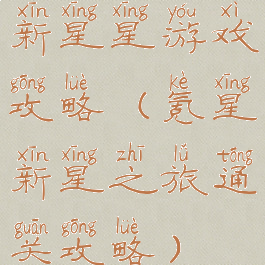 xīn xīng xīng yóu xì
新星星游戏
gōng lüè kè xīng
攻略（氪星
xīn xīng zhī lǚ tōng
新星之旅通
guān gōng lüè
关攻略）